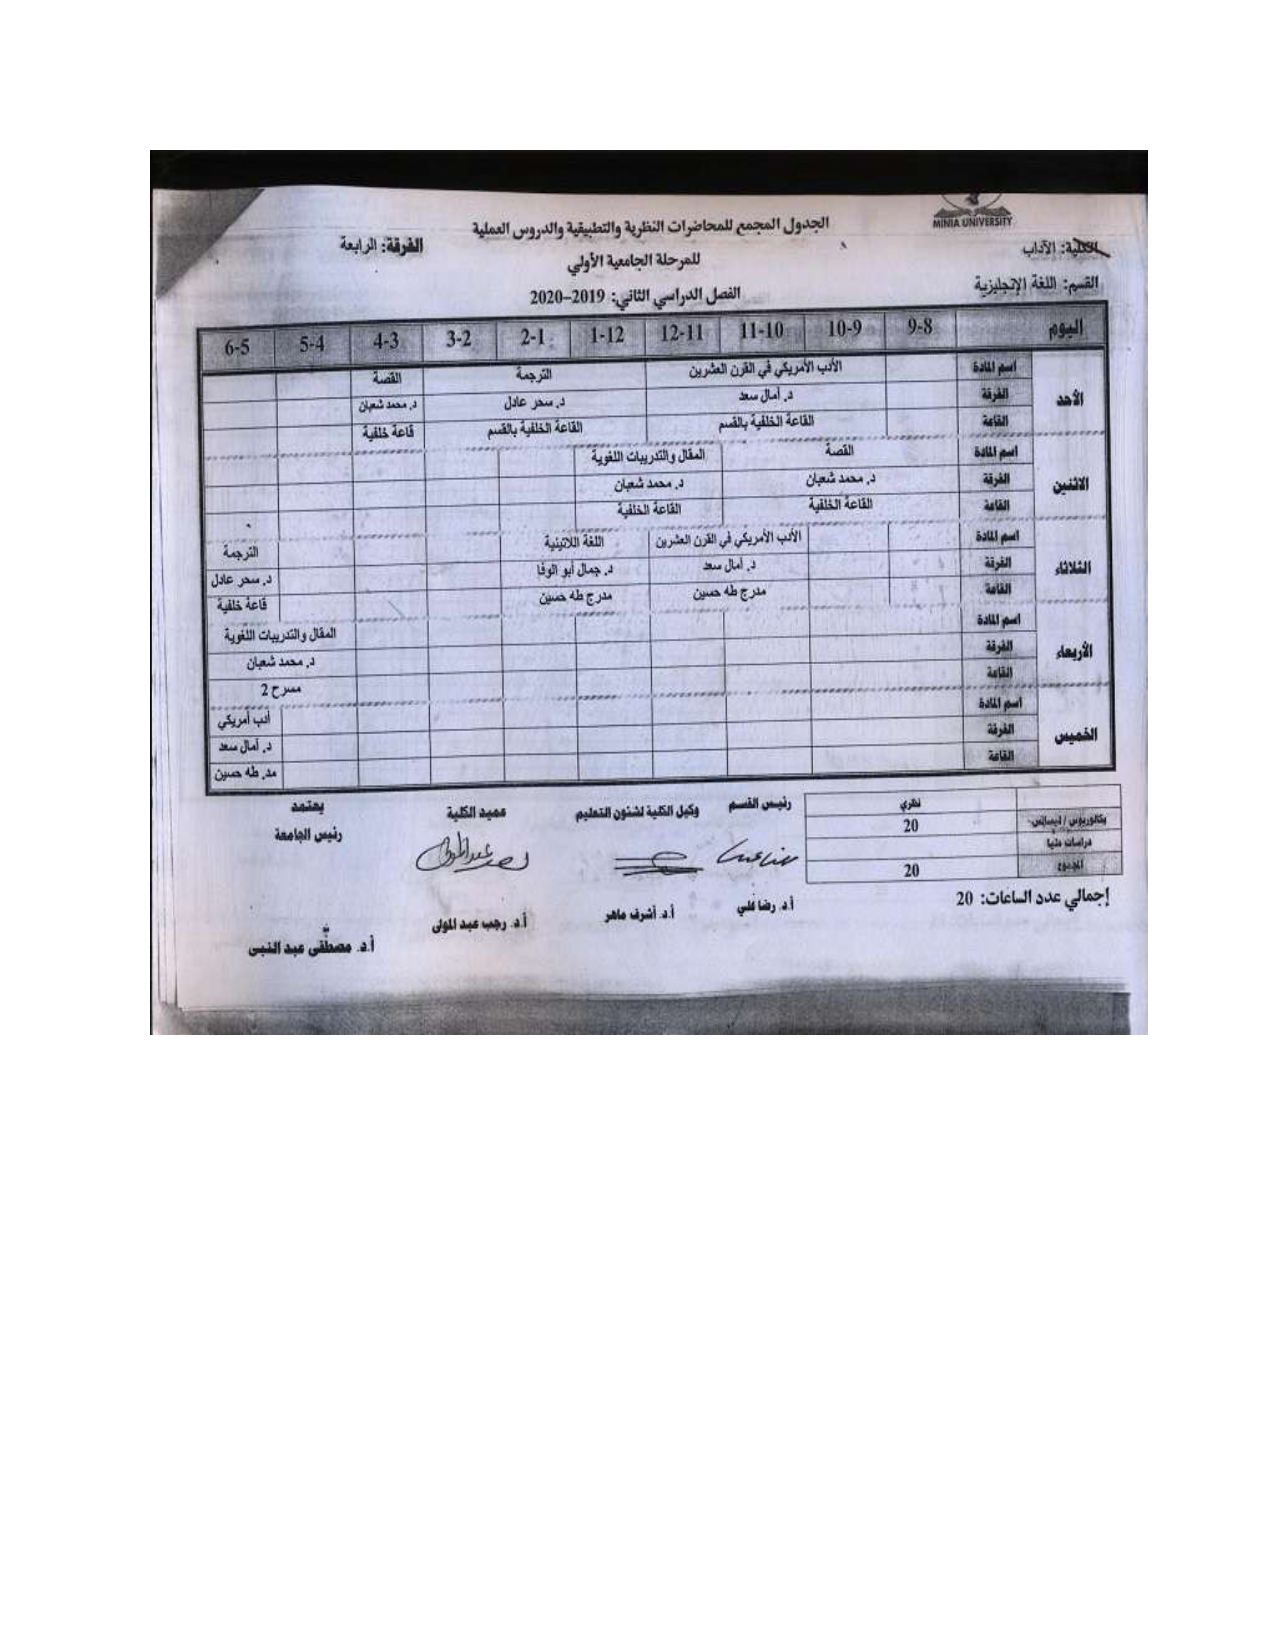 MINIA UNIVERSITY
الكلية: الآداب
القسم: اللغة الإنجليزية
الجدول المجمع للمحاضرات النظرية والتطبيقية والدروس العملية
للمرحلة الجامعية الأولي
الفصل الدراسي الثاني: 2019–2020
الفرقة: الرابعة
اليوم 9-8 10-9 11-10 12-11 1-12 2-1 3-2 4-3 5-4 6-5
الأحد
اسم المادة الأدب الأمريكي في القرن العشرين الترجمة القصة
الفرقة د. آمال سعد د. سحر عادل د. محمد شعبان
القاعة القاعة الخلفية بالقسم القاعة الخلفية بالقسم قاعة خلفية
الاثنين
اسم المادة القصة المقال والتدريبات اللغوية
الفرقة د. محمد شعبان د. محمد شعبان
القاعة القاعة الخلفية القاعة الخلفية
الثلاثاء
اسم المادة الأدب الأمريكي في القرن العشرين اللغة اللاتينية الترجمة
الفرقة د. آمال سعد د. جمال أبو الوفا د. سحر عادل
القاعة مدرج طه حسين مدرج طه حسين قاعة خلفية
الأربعاء
اسم المادة المقال والتدريبات اللغوية
الفرقة د. محمد شعبان
القاعة مسرح 2
الخميس
اسم المادة أدب أمريكي
الفرقة د. آمال سعد
القاعة مد. طه حسين
نظري
بكالوريوس / ليسانس 20
دراسات عليا
المجموع 20
إجمالي عدد الساعات: 20
رئيس القسم
أ.د. رضا علي
وكيل الكلية لشئون التعليم
أ.د. أشرف ماهر
عميد الكلية
أ.د. رجب عبد المولى
يعتمد
رئيس الجامعة
أ.د. مصطفى عبد النبى